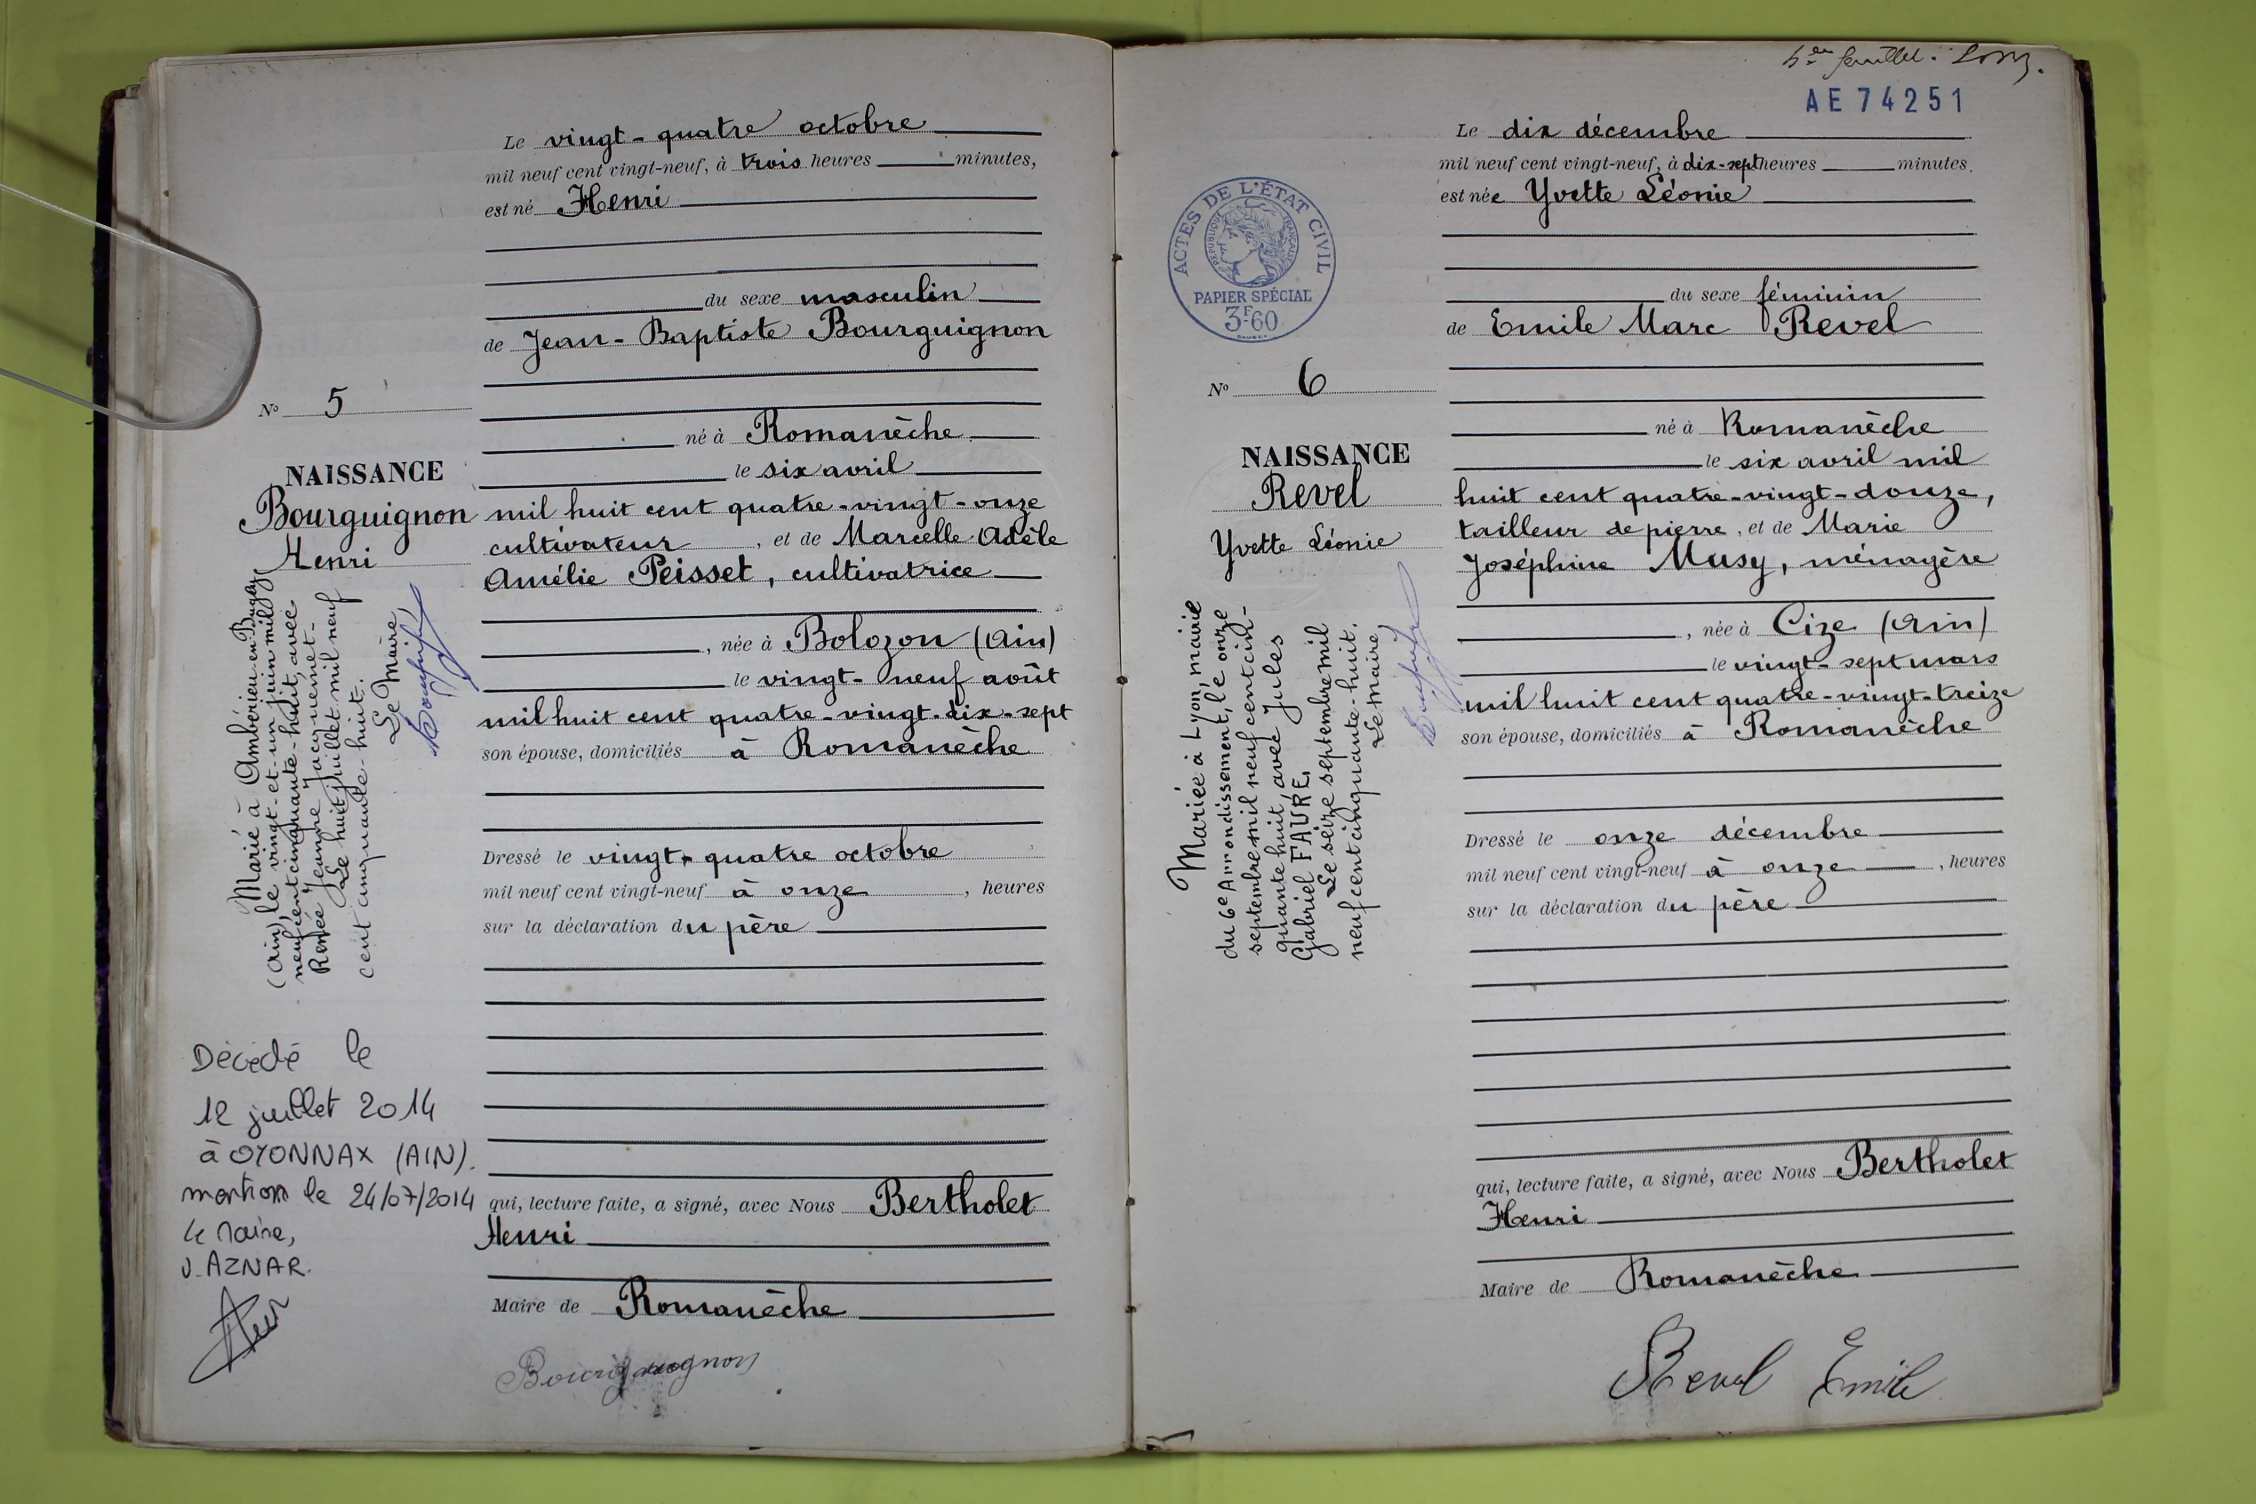 Le vingt-quatre octobre
mil neuf cent vingt-neuf, à trois heures minutes,
est né Henri
du sexe masculin
de Jean-Baptiste Bourguignon
né à Romanèche
le six avril
mil huit cent quatre-vingt-onze
cultivateur, et de Marcelle Adèle
Amélie Peisset, cultivatrice
, née à Bolozon (Ain)
le vingt-neuf août
mil huit cent quatre-vingt-dix-sept
son épouse, domiciliés à Romanèche
Dressé le vingt-quatre octobre
mil neuf cent vingt-neuf à onze, heures
sur la déclaration du père
qui, lecture faite, a signé, avec Nous Bertholet
Henri
Maire de Romanèche
Bourguignon
N° 5
NAISSANCE
Bourguignon
Henri
Marié à Ambérieu-en-Bugey
(Ain), le vingt-et-un juin mil
neuf cent cinquante-huit, avec
Renée Jeanne Jacquemet-
Le huit juillet mil neuf
cent cinquante-huit.
Le Maire,
Décédé le
12 juillet 2014
à OYONNAX (AIN).
mention le 24/07/2014
Le Maire,
J. AZNAR.
feuillet.
AE 74251
Le dix décembre
mil neuf cent vingt-neuf, à dix-sept heures minutes.
est née Yvette Léonie
du sexe féminin
de Emile Marc Revel
né à Romanèche
le six avril mil
huit cent quatre-vingt-douze,
tailleur de pierre, et de Marie
Joséphine Musy, ménagère
, née à Cize (Ain)
le vingt-sept mars
mil huit cent quatre-vingt-treize
son épouse, domiciliés à Romanèche
Dressé le onze décembre
mil neuf cent vingt-neuf à onze, heures
sur la déclaration du père
qui, lecture faite, a signé, avec Nous Bertholet
Henri
Maire de Romanèche
Revel Emile
ACTES DE L'ÉTAT CIVIL
RÉPUBLIQUE FRANÇAISE
PAPIER SPÉCIAL
3F60
N° 6
NAISSANCE
Revel
Yvette Léonie
Mariée à Lyon, mairie
du 6e Arrondissement, le onze
septembre mil neuf cent cin-
quante huit, avec Jules
Gabriel FAURE,
Le seize septembre mil
neuf cent cinquante-huit.
Le Maire,